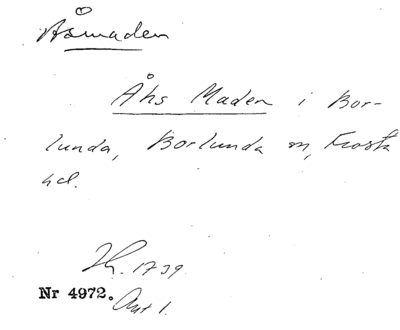 Åsmaden
Åhs Maden i Bor-
lunda, Borlunda sn, Frosta
hd.
1739.
Nr 4972. Akt 1.